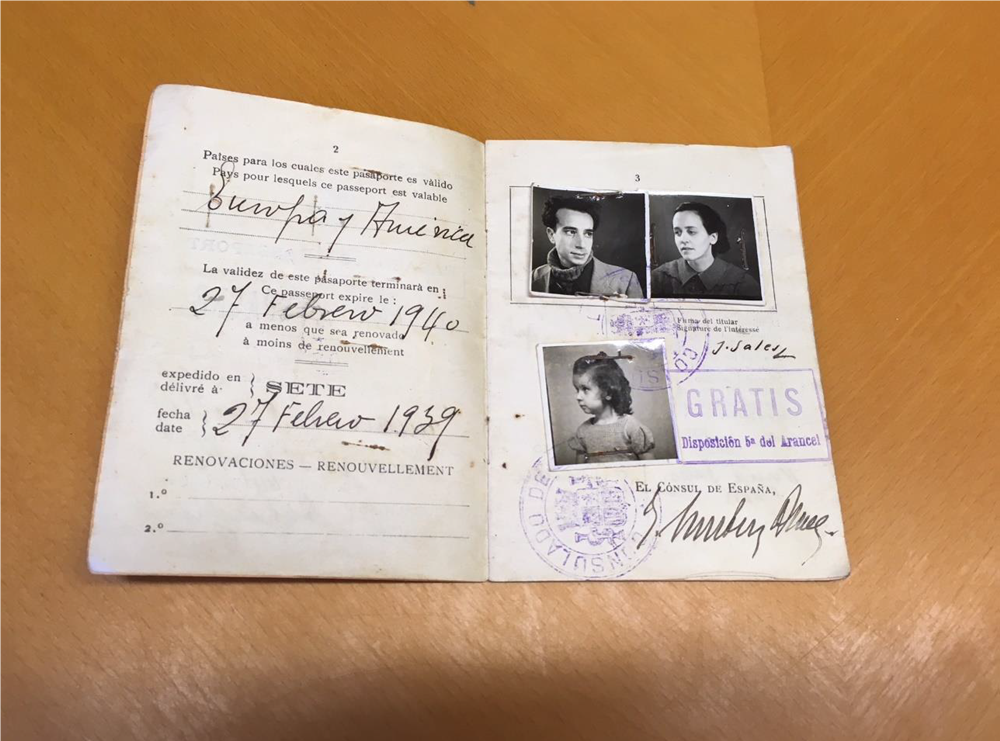 2
Países para los cuales este pasaporte es vàlido
Pays pour lesquels ce passeport est valable
Europa y América
La validez de este pasaporte terminará en :
Ce passeport expire le :
27 Febrero 1940
a menos que sea renovado
à moins de renouvellement
expedido en
délivré à
SETE
fecha
date
27 Febrero 1939
RENOVACIONES — RENOUVELLEMENT
1.º
2.º
3
Firma del titular
Signature de l'Intéressé
J. Sales
GRATIS
Disposición 5ª del Arancel
EL CÓNSUL DE ESPAÑA,
CONSULADO DE